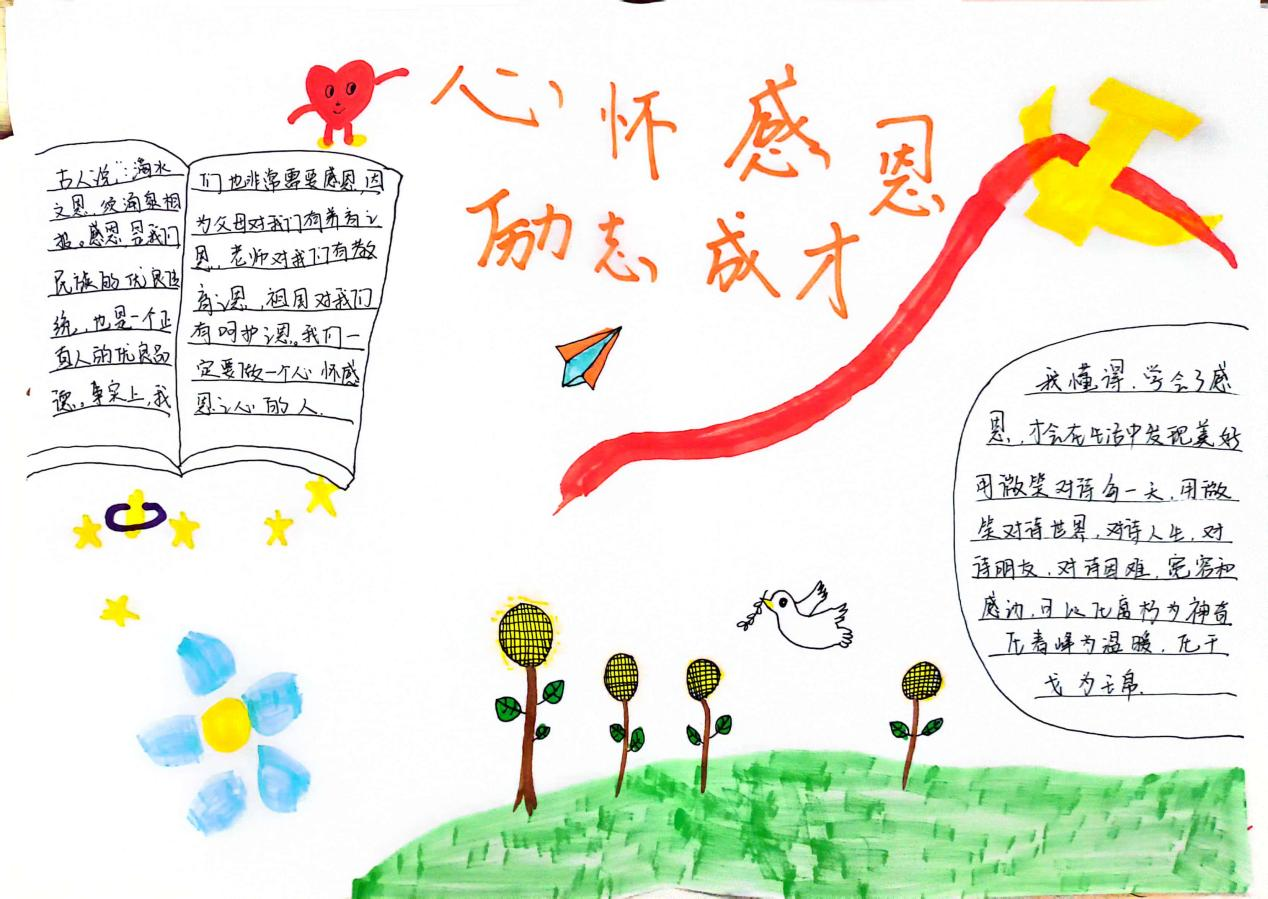 心怀感恩
励志成才
古人说:"滴水
之恩,
报。感恩是我们
民族的优良传
统,也是一个正
直人的优良品
德。事实上,我
们也非常需要感恩,因
为父母对我们有养育之
恩,老师对我们有教
育之恩,祖国对我们
有呵护之恩。我们一
定要做一个心怀感
恩之心的人.
我懂得,学会了感
恩,才会在生活中发现美好
用微笑对待每一天,用微
笑对待世界,对待人生,对
待朋友,对待困难,宽容和
感动,可以化腐朽为神奇
化 为温暖,化干
戈为玉帛.